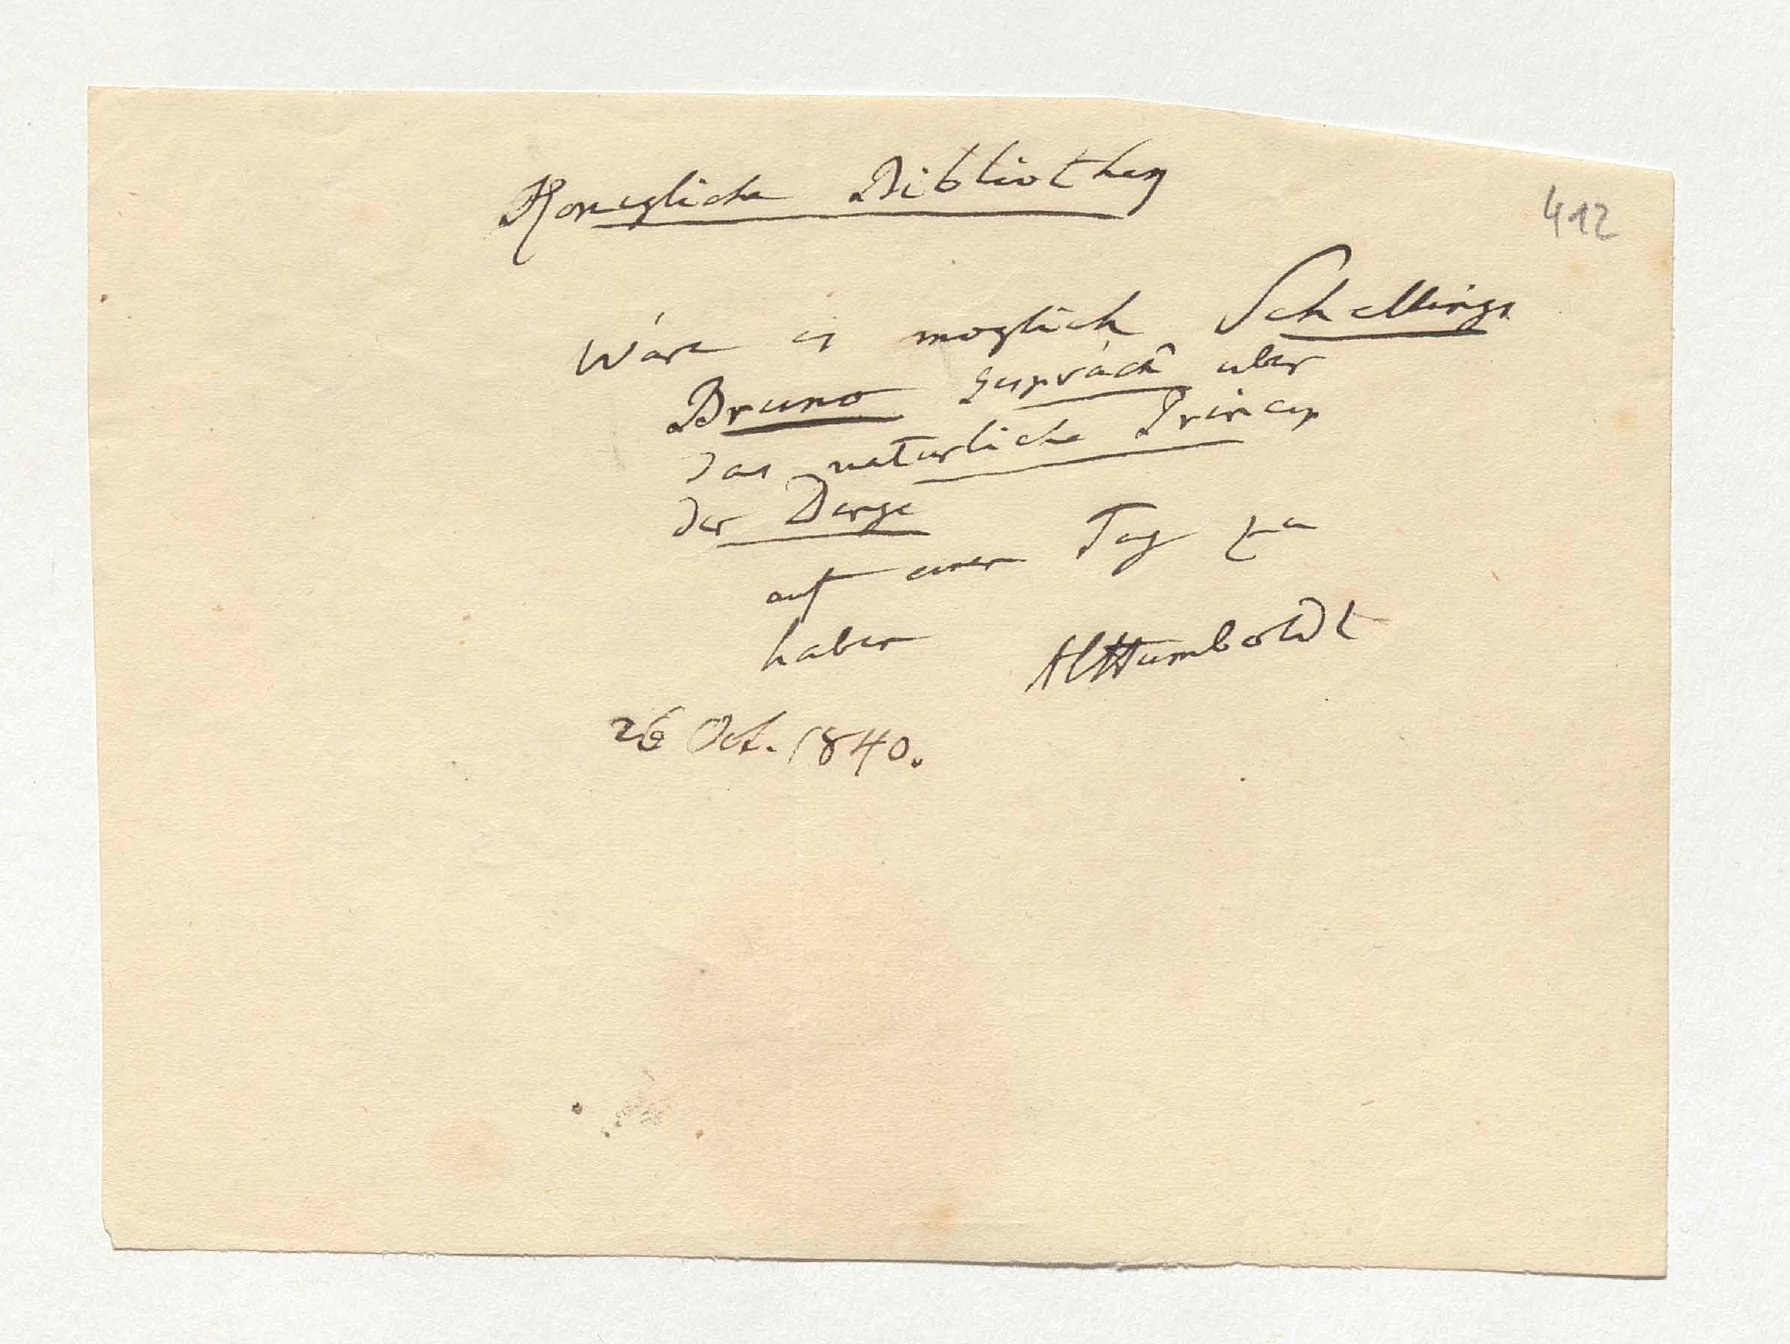 Konigliche Bibliothek
412
Wäre es moglich Schellings
Bruno Gespräch uber
das naturliche Princip
der Dinge
auf einen Tag zu
haben AlHumboldt
26 Oct. 1840.